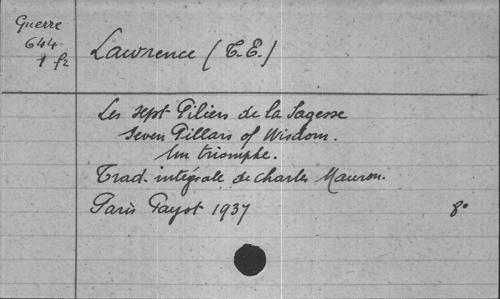 Guerre
644
1 fz
Lawrence (T.E.)
Les sept Piliers de la Sagesse
Seven Pillars of Wisdom.
Un triomphe.
Trad. intégrale de Charles Mauron.
Paris Payot 1937 8°